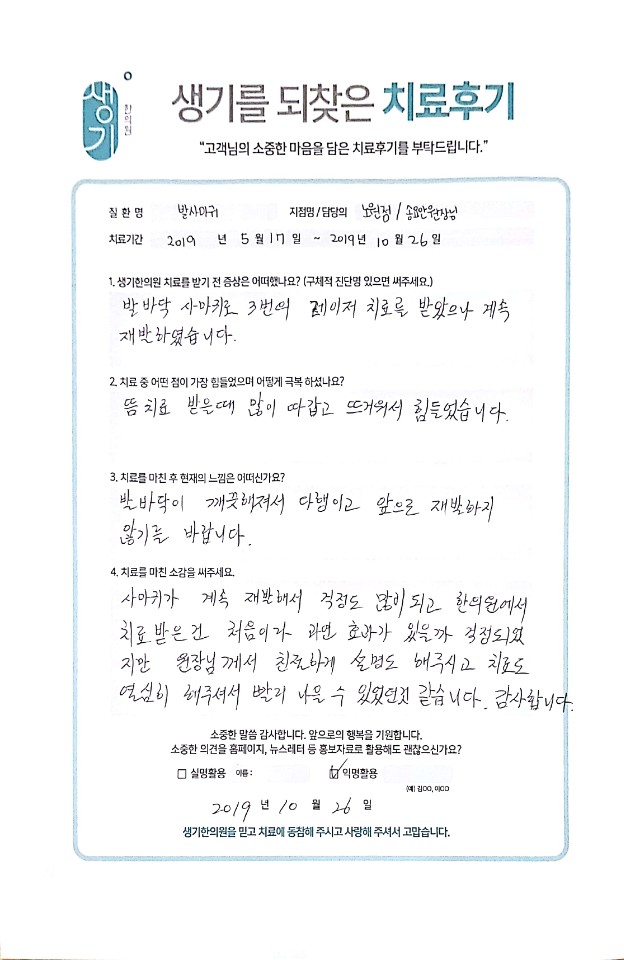 생기 한의원
생기를 되찾은 치료후기
“고객님의 소중한 마음을 담은 치료후기를 부탁드립니다.”
질 환 명 발사마귀 지점명 / 담당의 노원점 / 송요안원장님
치료기간 2019 년 5 월 17 일 ~ 2019 년 10 월 26 일
1. 생기한의원 치료를 받기 전 증상은 어떠했나요? (구체적 진단명 있으면 써주세요.)
발바닥 사마귀로 3번여 레이저 치료를 받았으나 계속
재발하였습니다.
2. 치료 중 어떤 점이 가장 힘들었으며 어떻게 극복 하셨나요?
뜸 치료 받을때 많이 따갑고 뜨거워서 힘들었습니다.
3. 치료를 마친 후 현재의 느낌은 어떠신가요?
발바닥이 깨끗해져서 다행이고 앞으로 재발하지
않기를 바랍니다.
4. 치료를 마친 소감을 써주세요.
사마귀가 계속 재발해서 걱정도 많이 되고 한의원에서
치료받은건 처음이라 과연 효과가 있을까 걱정되었
지만 원장님께서 친절하게 설명도 해주시고 치료도
열심히 해주셔서 빨리 나을 수 있었던것 같습니다. 감사합니다.
소중한 말씀 감사합니다. 앞으로의 행복을 기원합니다.
소중한 의견을 홈페이지, 뉴스레터 등 홍보자료로 활용해도 괜찮으신가요?
□ 실명활용 이름 : ☑ 익명활용
(예) 김OO, 이OO
2019 년 10 월 26 일
생기한의원을 믿고 치료에 동참해 주시고 사랑해 주셔서 고맙습니다.